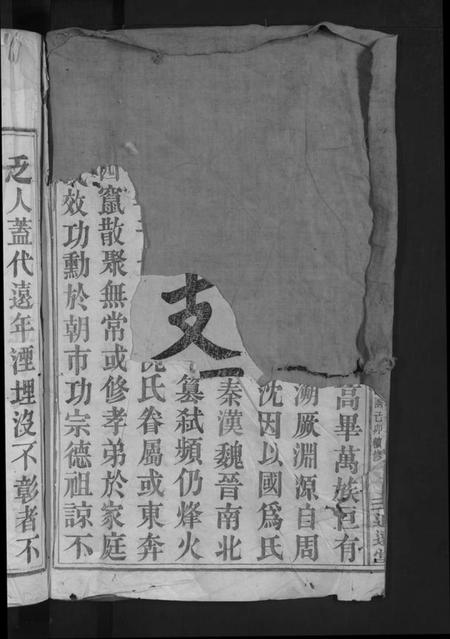 己卯續修
高畢萬族恒有
溯厥淵源自周
沈因以國爲氏
秦漢魏晉南北
篡弒頻仍烽火
氏眷屬或東奔
竄散聚無常或修孝弟於家庭
效功勳於朝市功宗德祖諒不
乏人蓋代遠年湮埋沒不彰者不
支一